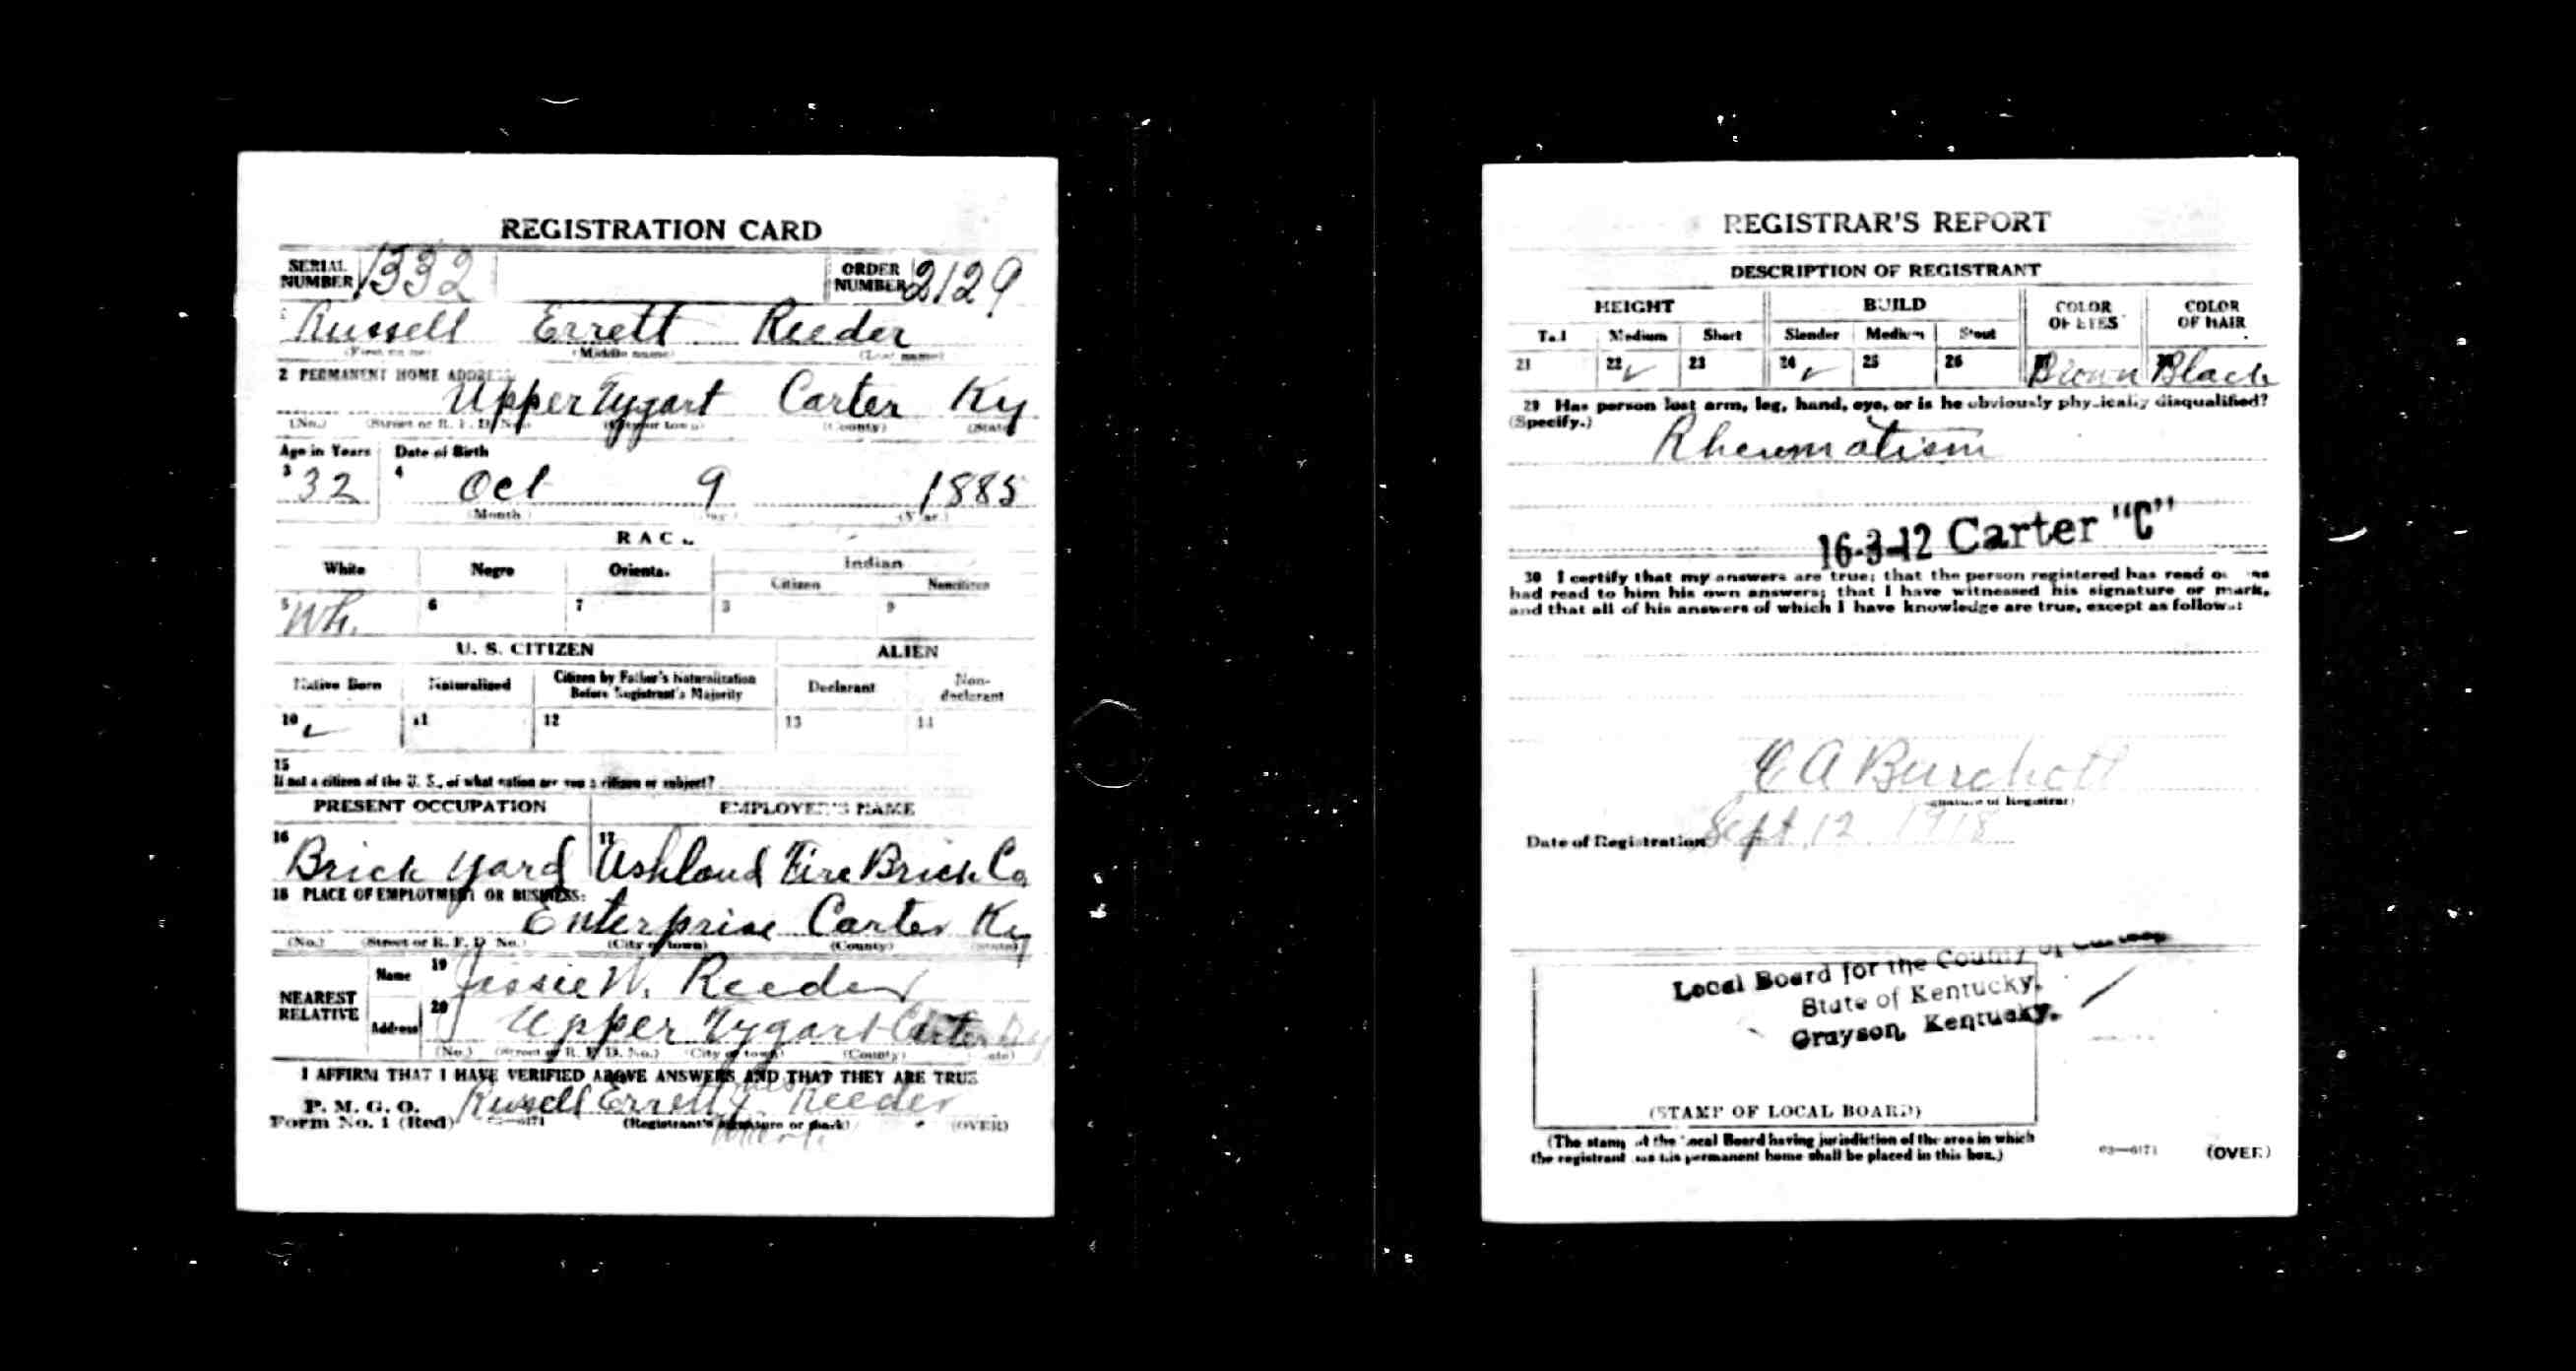 REGISTRATION CARD
SERIAL NUMBER 1332 ORDER NUMBER 2129
Russell Errett Reeder
(Middle name) (Last name)
2 PERMANENT HOME ADDRESS
Upper Tygart Carter Ky
(No.) (Street or R. F. D. No.) (City or town) (County) (State)
Age in Years Date of Birth
3 32 4 Oct 9 1885
(Month) (Year)
RAC
White Negro Orienta. Indian
Citizen Noncitizen
5 Wh. 6 7 8 9
U. S. CITIZEN ALIEN
Native Born Naturalized Citizen by Father's Naturalization Before Registrant's Majority Declarant Non-declarant
10 ✓ 11 12 13 14
15
If not a citizen of the U. S., of what nation are you a citizen or subject?
PRESENT OCCUPATION EMPLOYER'S NAME
16 Brick Yard 17 Ashland Fire Brick Co
18 PLACE OF EMPLOYMENT OR BUSINESS:
Enterprise Carter Ky
(No.) (Street or R. F. D. No.) (City or town) (County) (State)
NEAREST RELATIVE Name 19 Jessie W. Reeder
Address 20 Upper Tygart Carter
(No.) (Street or R. F. D. No.) (City or town) (County)
I AFFIRM THAT I HAVE VERIFIED ABOVE ANSWERS AND THAT THEY ARE TRUE
P. M. G. O.
Form No. 1 (Red) Russell Errett Reeder
(Registrant's signature or mark) (OVER)
REGISTRAR'S REPORT
DESCRIPTION OF REGISTRANT
HEIGHT BUILD COLOR OF EYES COLOR OF HAIR
Tall Medium Short Slender Medium Stout
21 22 ✓ 23 24 ✓ 25 26 Brown Black
29 Has person lost arm, leg, hand, eye, or is he obviously physically disqualified?
(Specify.) Rheumatism
16-3-12 Carter "C"
30 I certify that my answers are true; that the person registered has read or has
had read to him his own answers; that I have witnessed his signature or mark,
and that all of his answers of which I have knowledge are true, except as follows:
(Signature of Registrar)
Date of Registration Sept. 12 1918
Local Board for the County of
State of Kentucky,
Grayson, Kentucky.
(STAMP OF LOCAL BOARD)
(The stamp of the Local Board having jurisdiction of the area in which
the registrant has his permanent home shall be placed in this box.)
03—6171 (OVER)